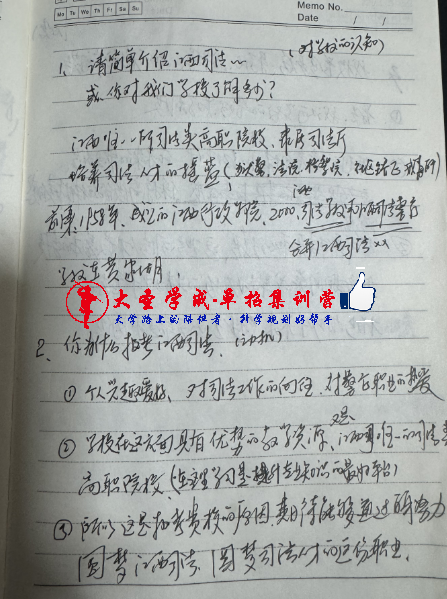 Mo Tu We Th Fr Sa Su
Memo No.
Date / /
(对学校的认知)
1、请简单介绍江西司法~
或你对我们学校了解多少?
江西唯一一所司法类高职院校,隶属司法厅
培养司法人才的摇篮(
前身1958年,成立的江西行政学院、2000,司法学校和江西司法警官
合并江西司法xx
学校在黄家湖
大圣学成·单招集训营
大学路上的陪伴者·升学规划好帮手
2、你为什么报考江西司法、(动机)
①个人兴趣爱好、对司法工作的向往,对警官职业的热爱
②学校在这方面具有优势的教学资源、江西唯一的司法类
又是
高职院校(在这里学习是提升专业知识的最好平台)
③所以这是报考贵校的原因,期待能够通过努力
圆梦江西司法、圆梦司法人才的这份职业.